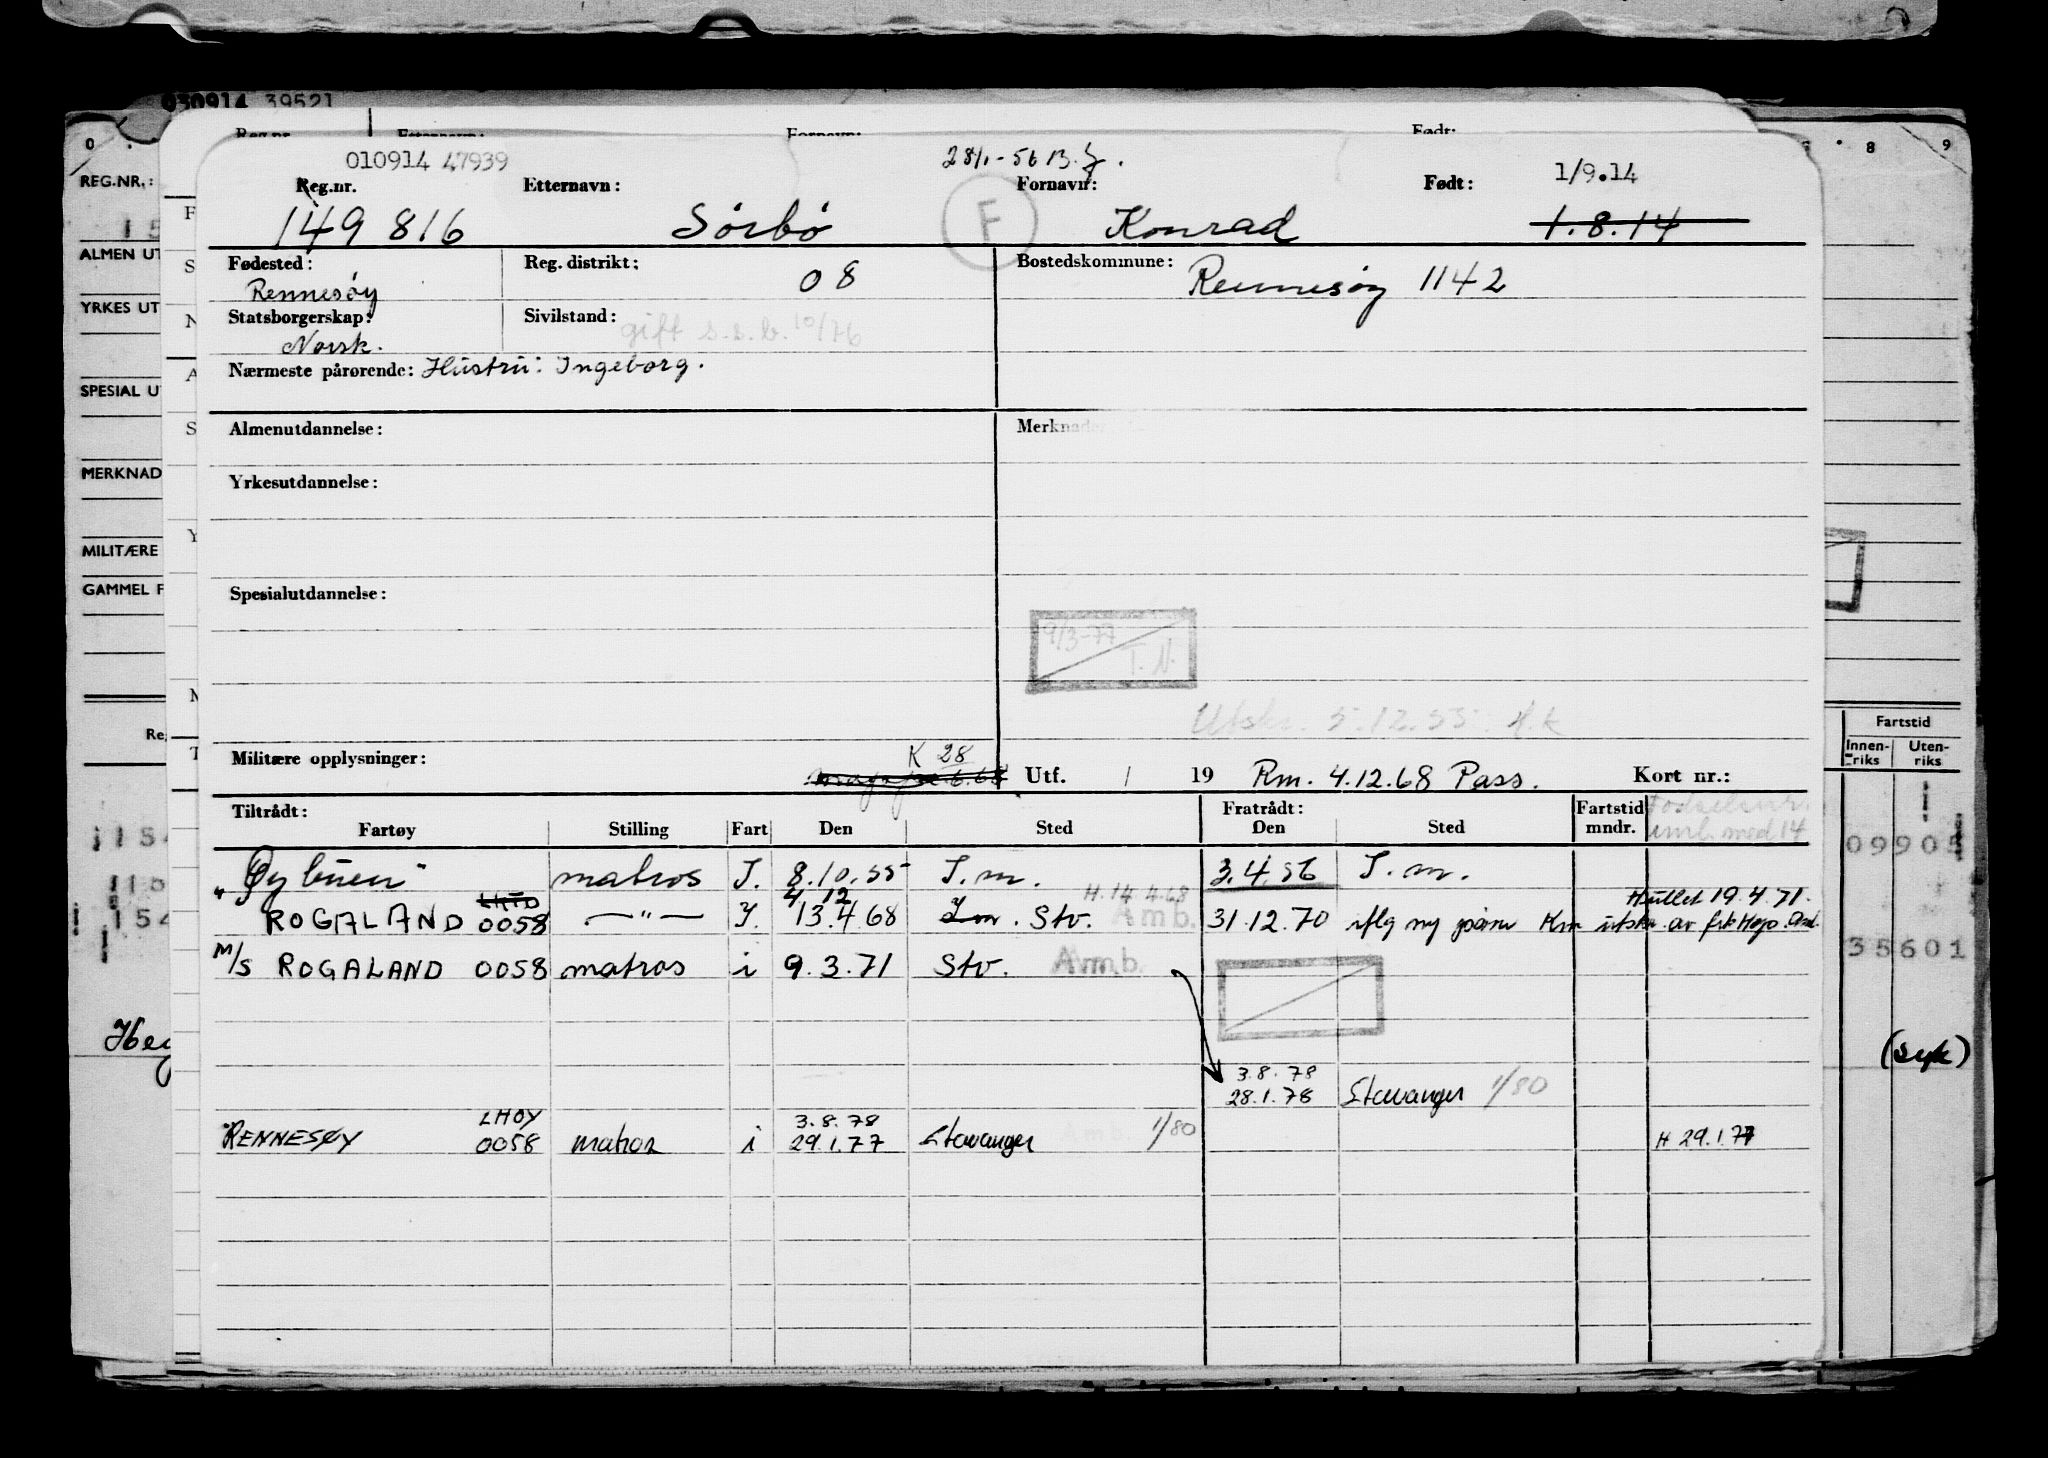 030914 39521
Reg.nr. Etternavn: Fornavn: Født:
010914 47939 28/1-56 B.J. 1/9.14
Reg.nr. Etternavn: Fornavn: Født:
149 816 Sörbö F Konrad 1.8.14
Fødested: Reg. distrikt: 08 Bostedskommune:
Rennesöy Rennesöy 1142
Statsborgerskap: Sivilstand: gift s.s.b. 10/76
Norsk.
Nærmeste pårørende: Hustru: Ingeborg.
Almenutdannelse: Merknader
Yrkesutdannelse:
Spesialutdannelse:
9/3-77
T.N.
Utskr. 5.12.55. H.k
K 28
Militære opplysninger: Utf. / 19 Rm. 4.12.68 Pass. Kort nr.:
Tiltrådt: Fratrådt: Fartstid
Fartøy Stilling Fart Den Sted Den Sted mndr.
umb. med 14
"Öybuen" matros I. 8.10.55 I.m. 3.4.56 I.m.
4 12 H.14.4.68 Hullet 19.4.71.
ROGALAND 0058 —"— I. 13.4.68 I.m. Stv. Amb. 31.12.70 iflg ny
M/S ROGALAND 0058 matros i 9.3.71 Stv. Amb.
3.8.78
28.1.78 Stavanger 1/80
LHOY 3.8.78
RENNESØY 0058 matros i 29.1.77 Stavanger Amb. 1/80 H 29.1.77
REG.NR.:
ALMEN UT
YRKES UT
SPESIAL U
MERKNAD
MILITÆRE
GAMMEL F
Re
154
8 9
Fartstid
Innen-riks Uten-riks
09905
35601
(syk)